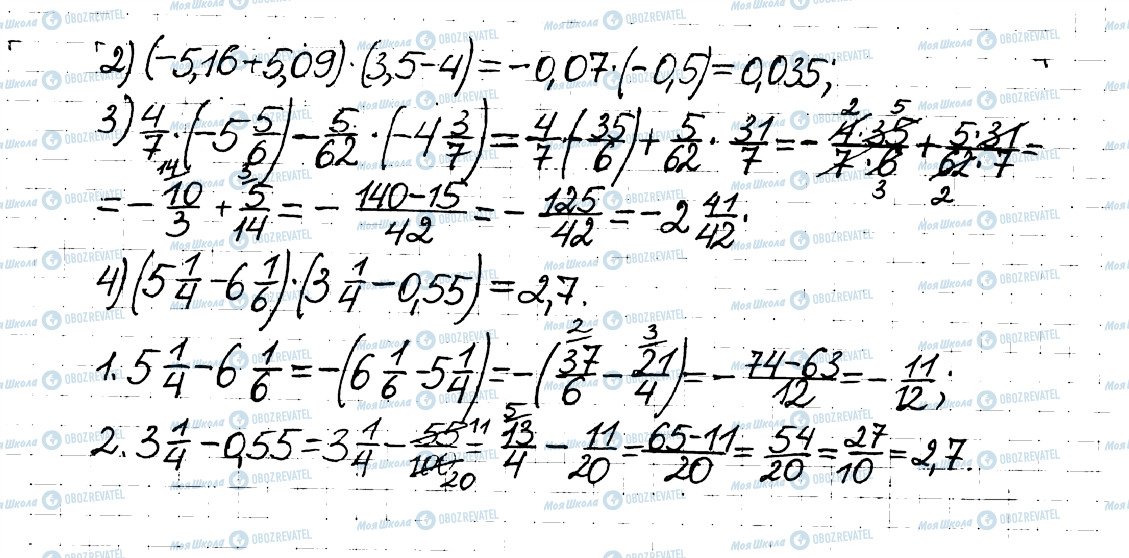 2) (-5,16+5,09)·(3,5-4)=-0,07·(-0,5)=0,035;
3) 4/7·(-5 5/6)-5/62·(-4 3/7)=4/7·(-35/6)+5/62·31/7=-4·35/7·6+5·31/62·7=
=-10/3+5/14=-140-15/42=-125/42=-2 41/42.
4) (5 1/4-6 1/6):(3 1/4-0,55)=2,7.
1. 5 1/4-6 1/6=-(6 1/6-5 1/4)=-(37/6-21/4)=-74-63/12=-11/12;
2. 3 1/4-0,55=3 1/4-55/100=13/4-11/20=65-11/20=54/20=27/10=2,7.
Моя Школа OBOZREVATEL